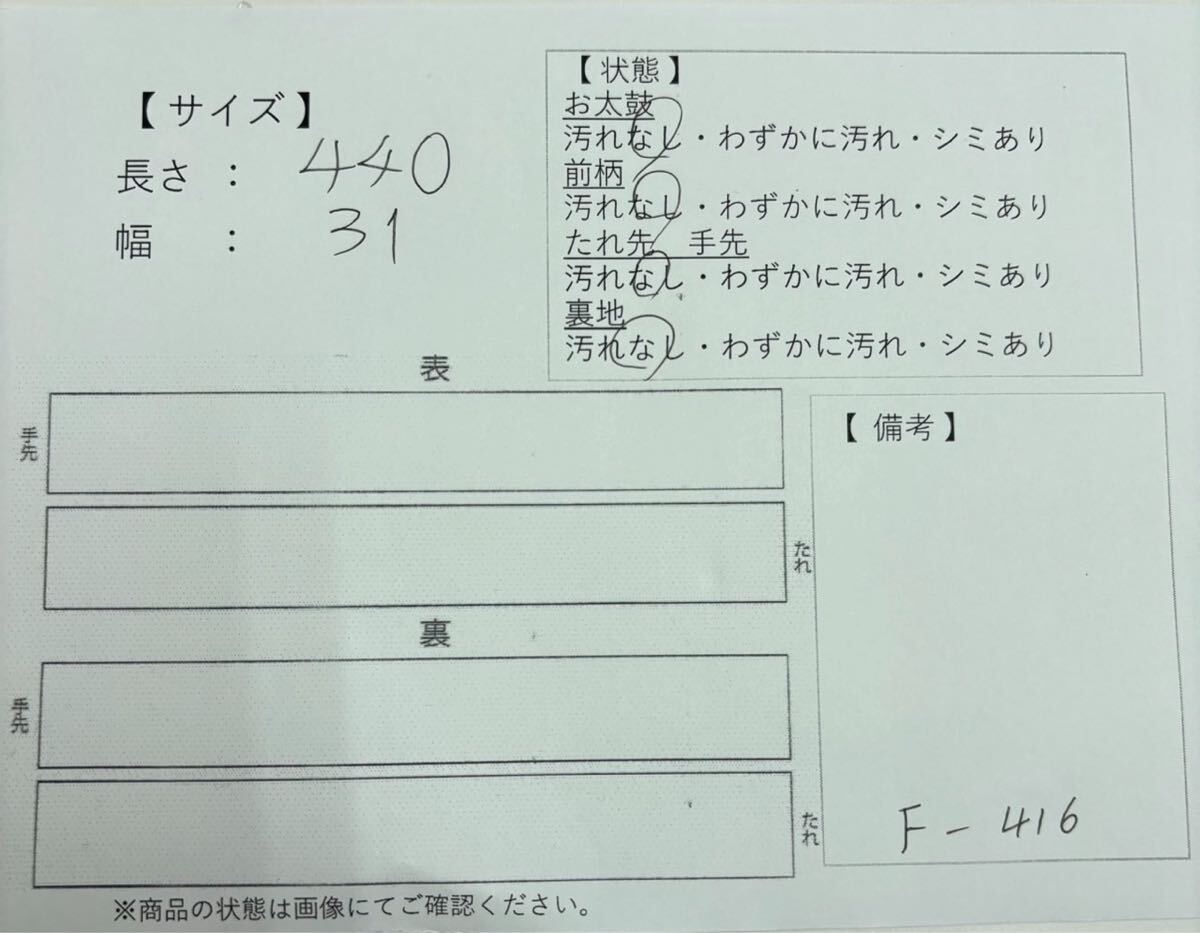 【 サイズ 】
長さ : 440
幅 : 31
【 状態 】
お太鼓
汚れなし・わずかに汚れ・シミあり
前柄
汚れなし・わずかに汚れ・シミあり
たれ先 手先
汚れなし・わずかに汚れ・シミあり
裏地
汚れなし・わずかに汚れ・シミあり
表
手先
たれ
裏
手先
たれ
【 備考 】
F - 416
※商品の状態は画像にてご確認ください。